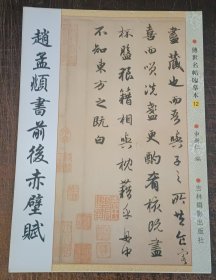 傳世名帖臨摹本
12
吉林攝影出版社
盡藏也而吾與子之所共食客
喜而笑洗盞更酌肴核既盡
杯盤狼籍相與枕籍乎舟中
不知東方之既白
趙孟頫書前後赤壁賦